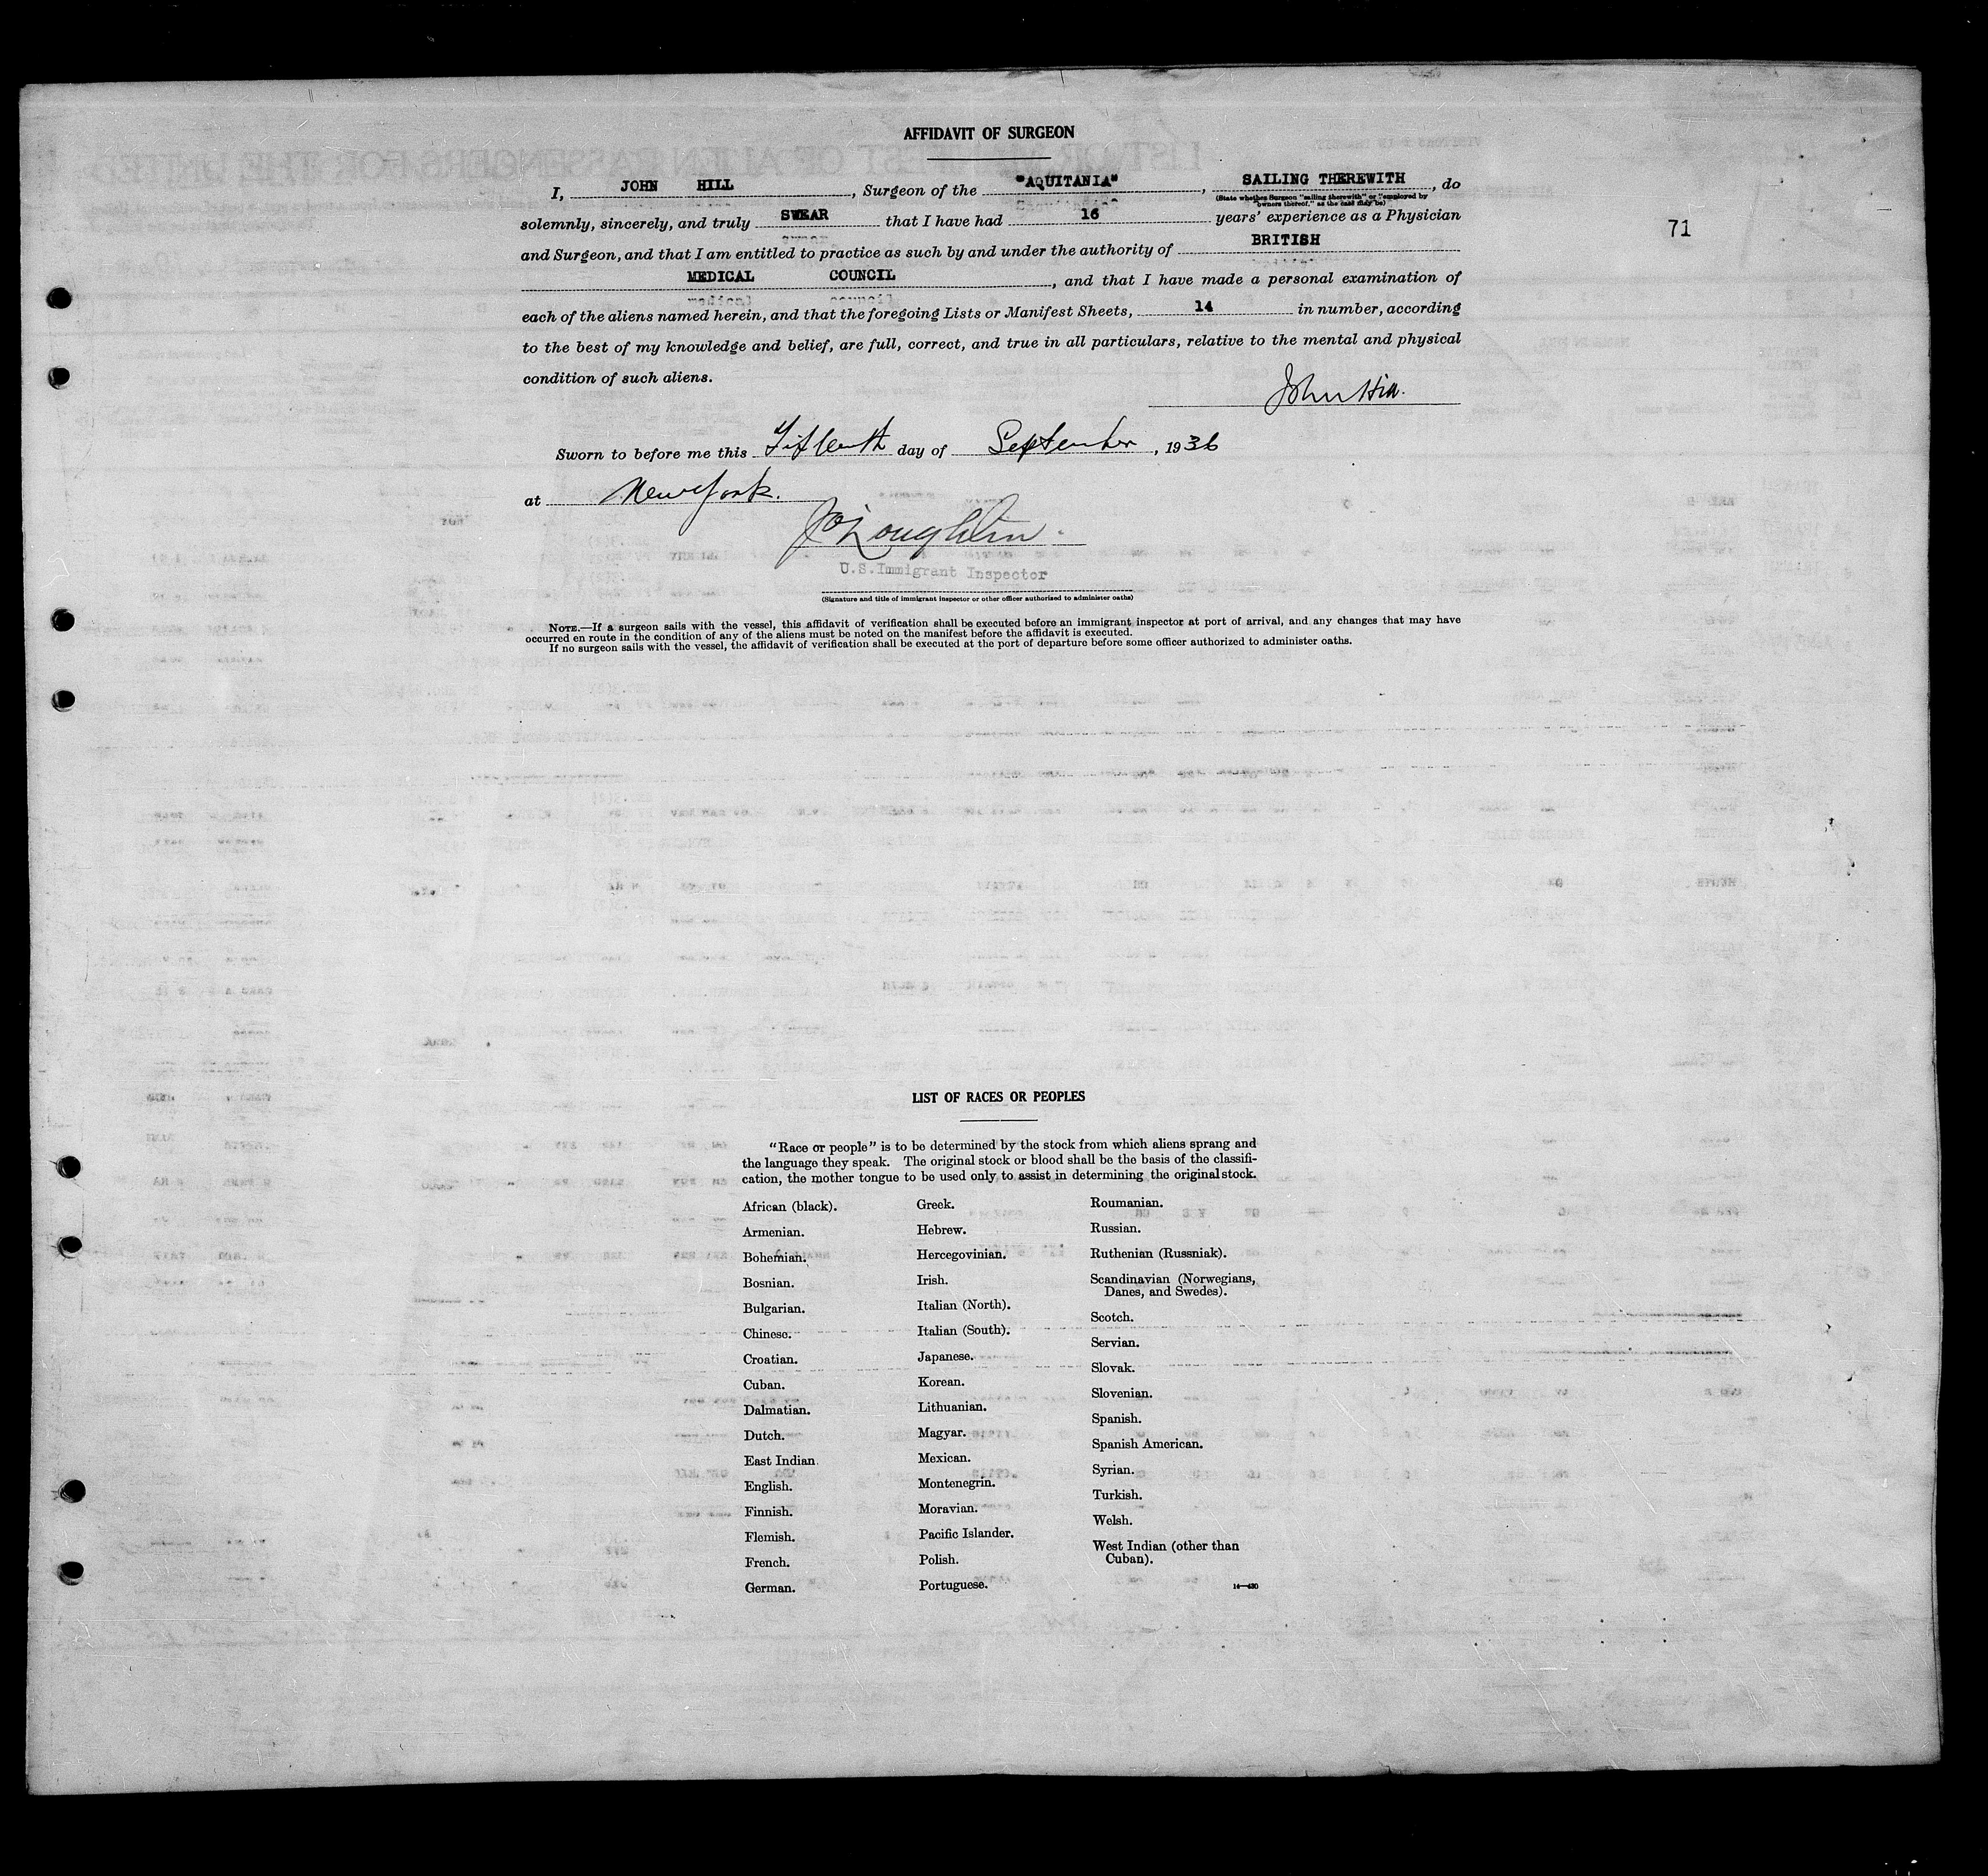 AFFIDAVIT OF SURGEON
I, JOHN HILL, Surgeon of the "AQUITANIA", SAILING THEREWITH, do
(State whether Surgeon "sailing therewith" or "employed by
owners thereof," as the case may be)
solemnly, sincerely, and truly SWEAR that I have had 16 years' experience as a Physician
71
and Surgeon, and that I am entitled to practice as such by and under the authority of BRITISH
MEDICAL COUNCIL, and that I have made a personal examination of
each of the aliens named herein, and that the foregoing Lists or Manifest Sheets, 14 in number, according
to the best of my knowledge and belief, are full, correct, and true in all particulars, relative to the mental and physical
condition of such aliens.
John Hill.
Sworn to before me this Fifteenth day of September, 1936
at New York.
J O'Loughlin
U.S.Immigrant Inspector
(Signature and title of immigrant inspector or other officer authorized to administer oaths)
NOTE.—If a surgeon sails with the vessel, this affidavit of verification shall be executed before an immigrant inspector at port of arrival, and any changes that may have
occurred en route in the condition of any of the aliens must be noted on the manifest before the affidavit is executed.
If no surgeon sails with the vessel, the affidavit of verification shall be executed at the port of departure before some officer authorized to administer oaths.
LIST OF RACES OR PEOPLES
"Race or people" is to be determined by the stock from which aliens sprang and
the language they speak. The original stock or blood shall be the basis of the classifi-
cation, the mother tongue to be used only to assist in determining the original stock.
African (black).
Armenian.
Bohemian.
Bosnian.
Bulgarian.
Chinese.
Croatian.
Cuban.
Dalmatian.
Dutch.
East Indian
English.
Finnish.
Flemish.
French.
German.
Greek.
Hebrew.
Hercegovinian.
Irish.
Italian (North).
Italian (South).
Japanese.
Korean.
Lithuanian.
Magyar.
Mexican.
Montenegrin.
Moravian.
Pacific Islander.
Polish.
Portuguese.
Roumanian.
Russian.
Ruthenian (Russniak).
Scandinavian (Norwegians,
Danes, and Swedes).
Scotch.
Servian.
Slovak.
Slovenian.
Spanish.
Spanish American.
Syrian.
Turkish.
Welsh.
West Indian (other than
Cuban).
14—430